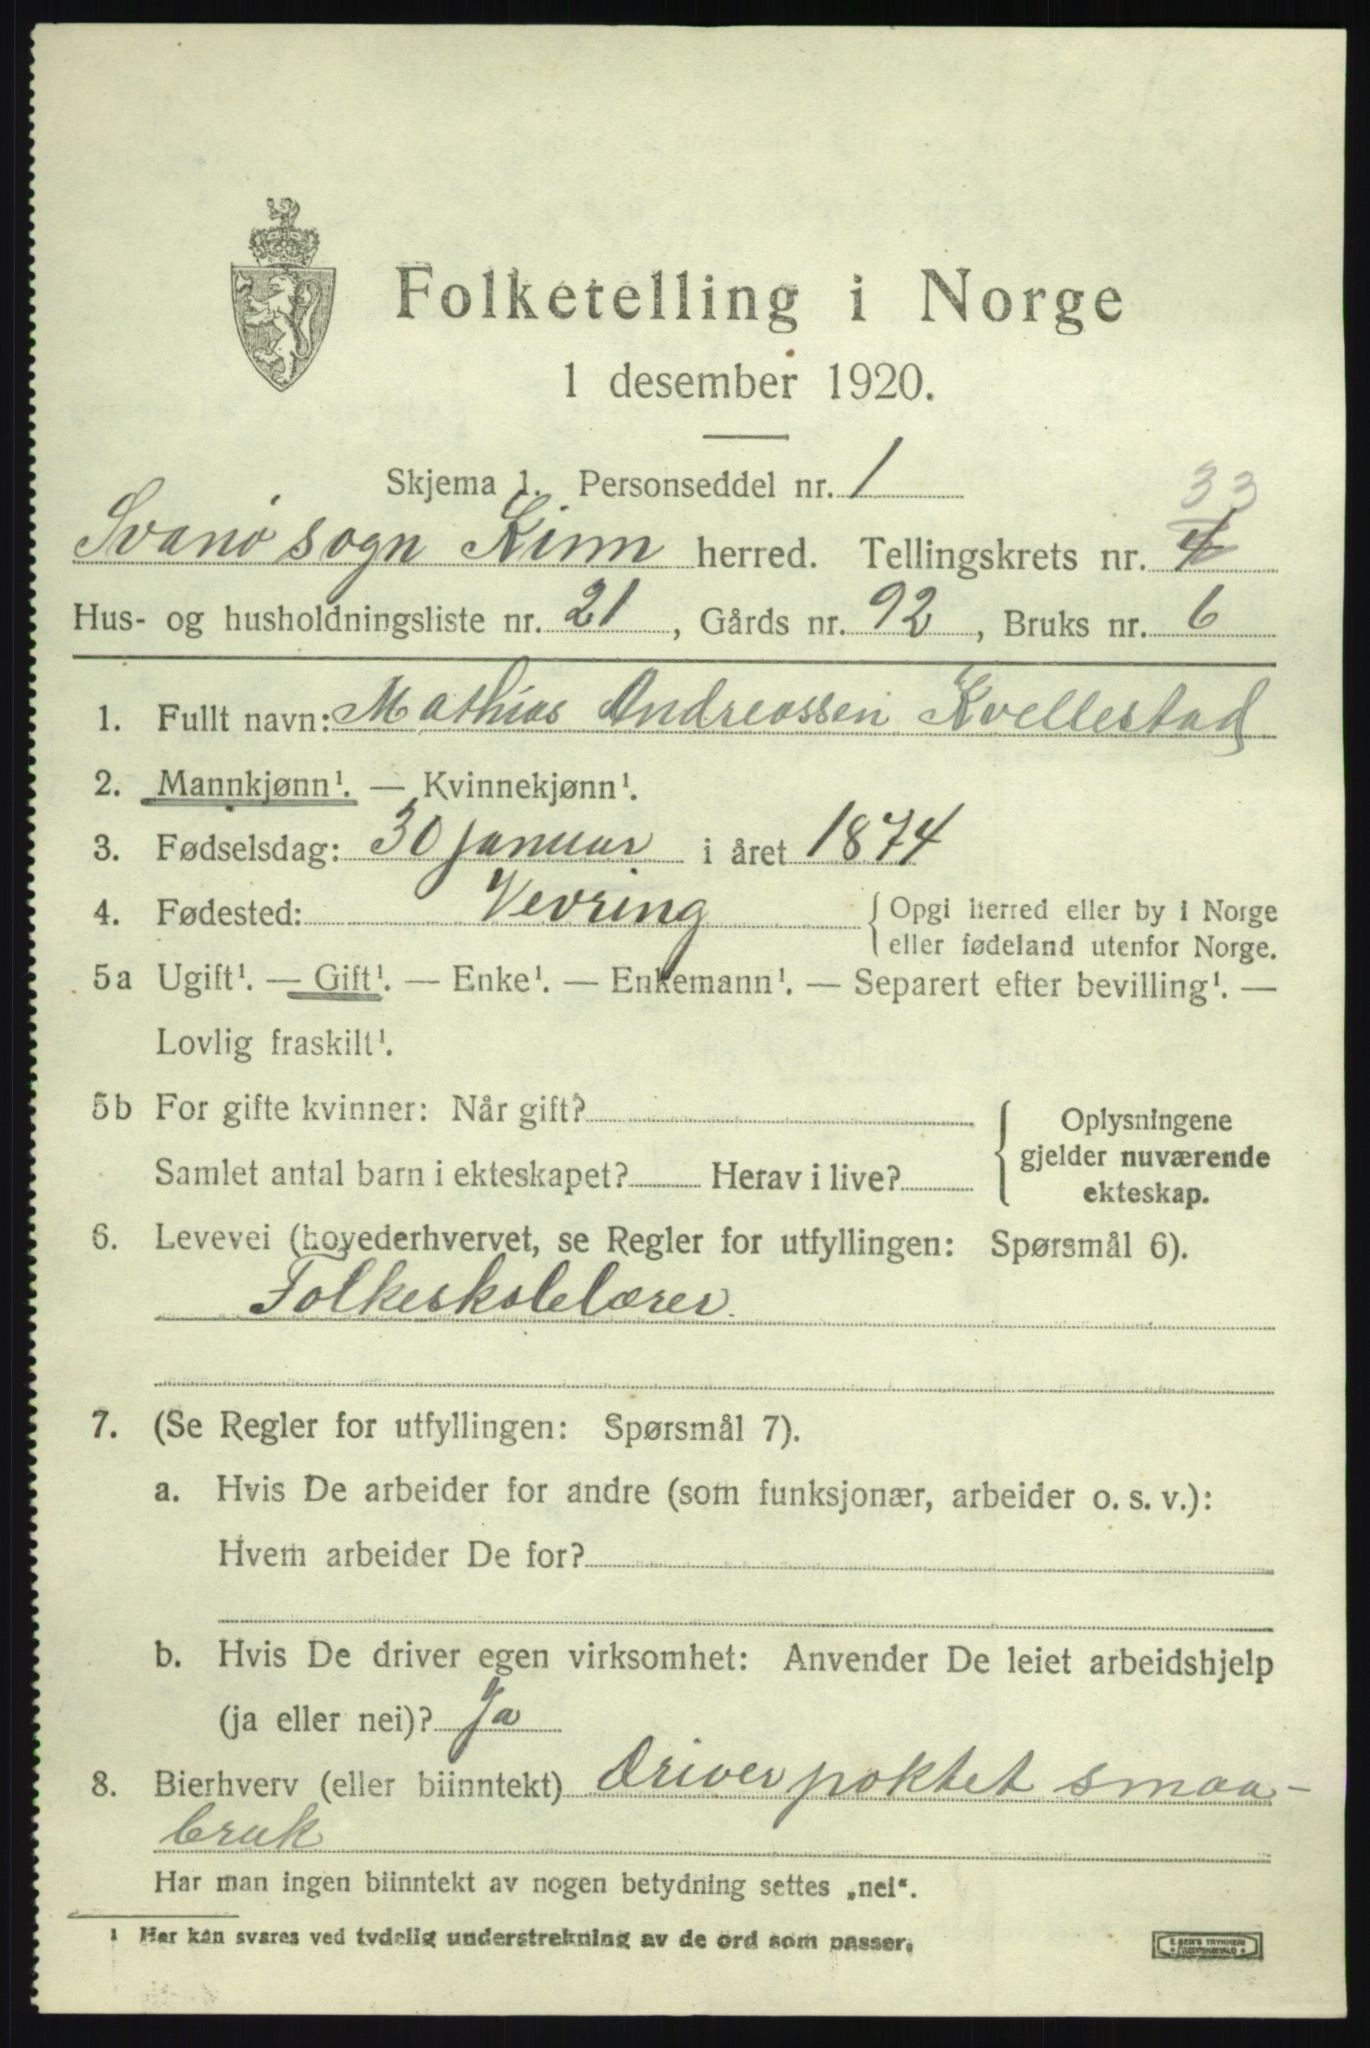 Folketelling i Norge
1 desember 1920.
Skjema 1. Personseddel nr. 1
33
Svanø sogn Kinn herred. Tellingskrets nr. 4
Hus- og husholdningsliste nr. 21, Gårds nr. 92, Bruks nr. 6
1. Fullt navn: Mathias Andreassen Kvellestad
2. Mannkjønn¹. — Kvinnekjønn¹.
3. Fødselsdag: 30 januar i året 1874
4. Fødested: Vevring { Opgi herred eller by i Norge
eller fødeland utenfor Norge.
5a Ugift¹. — Gift¹. — Enke¹. — Enkemann¹. — Separert efter bevilling¹. —
Lovlig fraskilt¹.
5b For gifte kvinner: Når gift?
Samlet antal barn i ekteskapet? Herav i live?
{ Oplysningene
gjelder nuværende
ekteskap.
6. Levevei (hovederhvervet, se Regler for utfyllingen: Spørsmål 6).
Folkeskolelærer.
7. (Se Regler for utfyllingen: Spørsmål 7).
a. Hvis De arbeider for andre (som funksjonær, arbeider o. s. v.):
Hvem arbeider De for?
b. Hvis De driver egen virksomhet: Anvender De leiet arbeidshjelp
(ja eller nei)? Ja
8. Bierhverv (eller biinntekt) Driver poktet smaa-
bruk
Har man ingen biinntekt av nogen betydning settes „nei“.
¹ Her kan svares ved tydelig understrekning av de ord som passer.